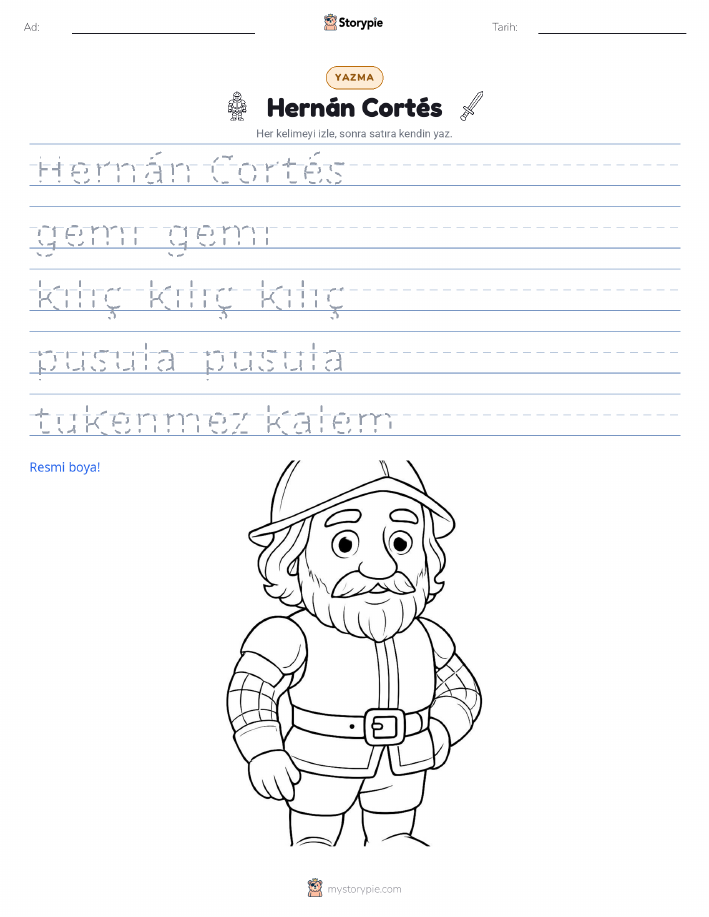 Ad:
Storypie
Tarih:
YAZMA
Hernán Cortés
Her kelimeyi izle, sonra satıra kendin yaz.
Hernán Cortés
gemi gemi
kılıç kılıç kılıç
pusula pusula
tukenmez kalem
Resmi boya!
mystorypie.com